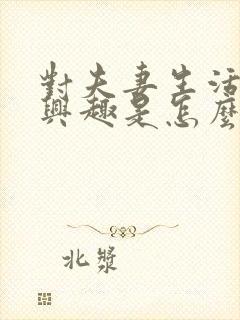 對夫妻生活
興趣是怎麼
北漿